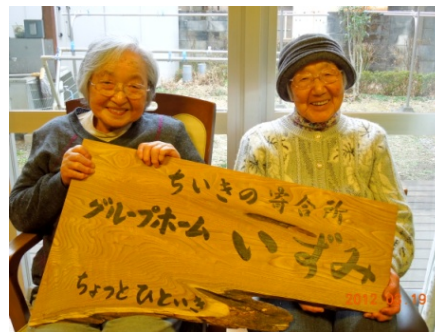 ちいきの寄合所
グループホーム
いずみ
ちょっとひといき